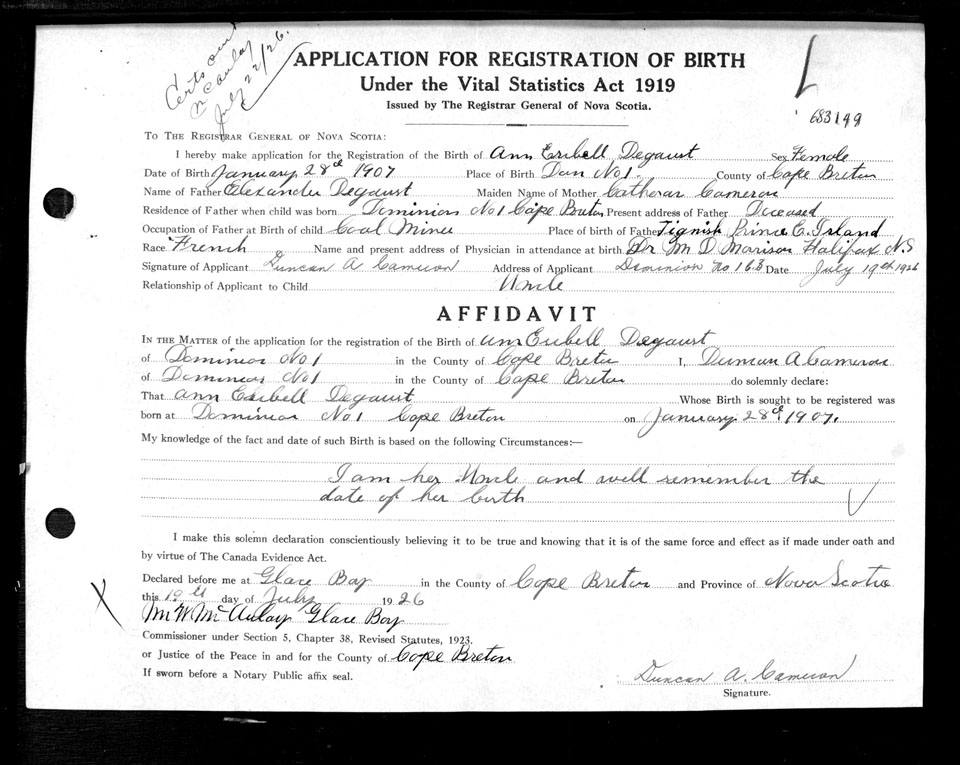 Certs out
McAulay
July 22/26.
APPLICATION FOR REGISTRATION OF BIRTH
Under the Vital Statistics Act 1919
Issued by The Registrar General of Nova Scotia.
683199
TO THE REGISTRAR GENERAL OF NOVA SCOTIA:
I hereby make application for the Registration of the Birth of Ann Esibell Degaust Sex Female
Date of Birth January 28th 1907 Place of Birth Dom No 1. County of Cape Breton
Name of Father Elexander Degaust Maiden Name of Mother Cameron
Residence of Father when child was born Dominion No 1 Cape Breton Present address of Father Deceased
Occupation of Father at Birth of child Coal Miner Place of birth of Father Tignish Prince E. Island
Race French Name and present address of Physician in attendance at birth Dr M D Morrison Halifax N.S
Signature of Applicant Duncan A Cameron Address of Applicant Dominion No 1 Date July 19th 1926
Relationship of Applicant to Child Uncle
AFFIDAVIT
IN THE MATTER of the application for the registration of the Birth of Ann Esibell Degaust
of Dominion No 1 in the County of Cape Breton I, Duncan A Cameron
of Dominion No 1 in the County of Cape Breton do solemnly declare:
That Ann Esibell Degaust Whose Birth is sought to be registered was
born at Dominion No 1 Cape Breton on January 28th 1907.
My knowledge of the fact and date of such Birth is based on the following Circumstances:—
I am her Uncle and well remember the
date of her birth
I make this solemn declaration conscientiously believing it to be true and knowing that it is of the same force and effect as if made under oath and
by virtue of The Canada Evidence Act.
Declared before me at Glace Bay in the County of Cape Breton and Province of Nova Scotia
this 19th day of July 1926
M W McAulay Glace Bay
Commissioner under Section 5, Chapter 38, Revised Statutes, 1923.
or Justice of the Peace in and for the County of Cape Breton
If sworn before a Notary Public affix seal.
Duncan A. Cameron
Signature.